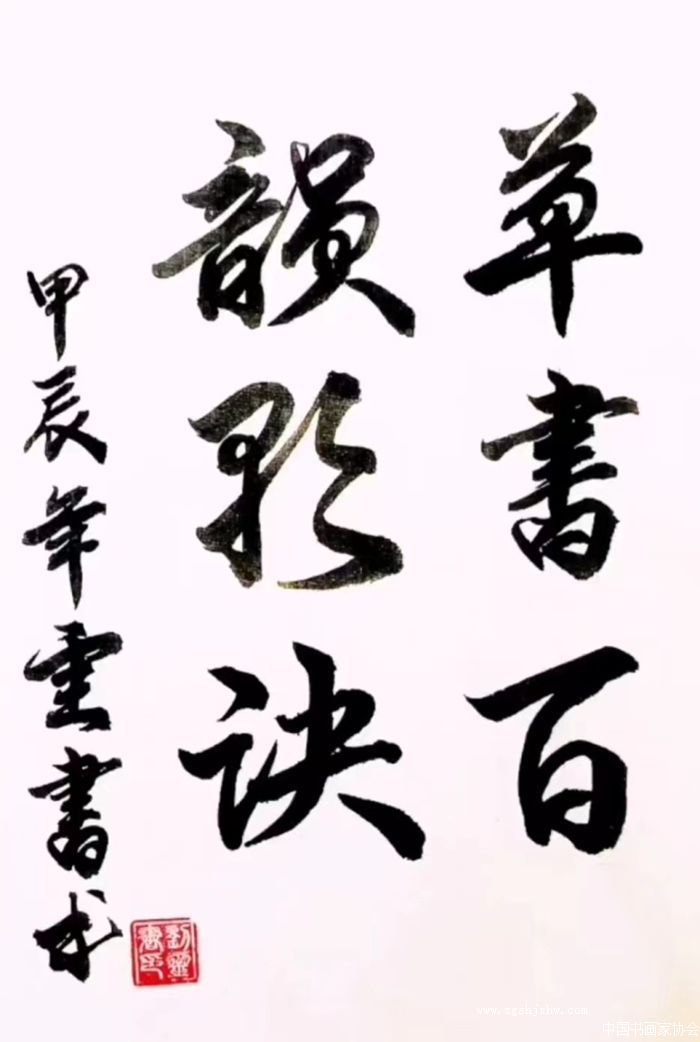 草書百
韻歌訣
甲辰年書
www.zgshjxhw.com
中国书画家协会